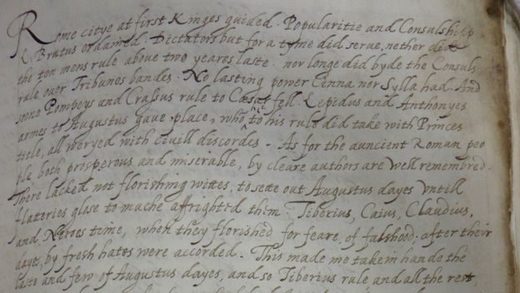 Rome citye at first Kinges guided. Popularitie and Consulshipp
L. Brutus ordained. Dictators but for a tyme did serve, nether did
the ten mens rule above two yeares laste nor longe did byde the Consuls
rule over Tribunes bandes. No lasting power Cinna nor Sylla had. And
sone Pompeys and Crassus rule to Cæsar fell. Lepidus and Anthonyes
armes to Augustus gave place, who to his rule did take with Princes
title, all weryed with civell discordes. As for the auncient Roman peo
ple both prosperous and miserable, by cleare authors are well remembred.
There lacked not florishing wittes, to sette out Augustus dayes untill
flatteries glose to muche affrighted them. Tiberius, Caius, Claudius,
and Neroes time, when they florished for feare, of falshood: after their
dayes, by fresh hates were accorded. This made me take in hande the
late and few of Augustus dayes, and so Tiberius rule and all the rest